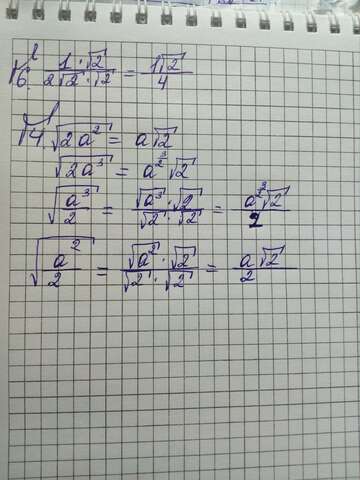 √6. (1 · √2)/(2√2 · √2) = (1√2)/4
√4. √(2a²) = a√2
√(2a³) = a^(3/2)√2
√(a³/2) = (√a³ · √2)/(√2 · √2) = (a^(3/2)√2)/2
√(a²/2) = (√a² · √2)/(√2 · √2) = (a√2)/2